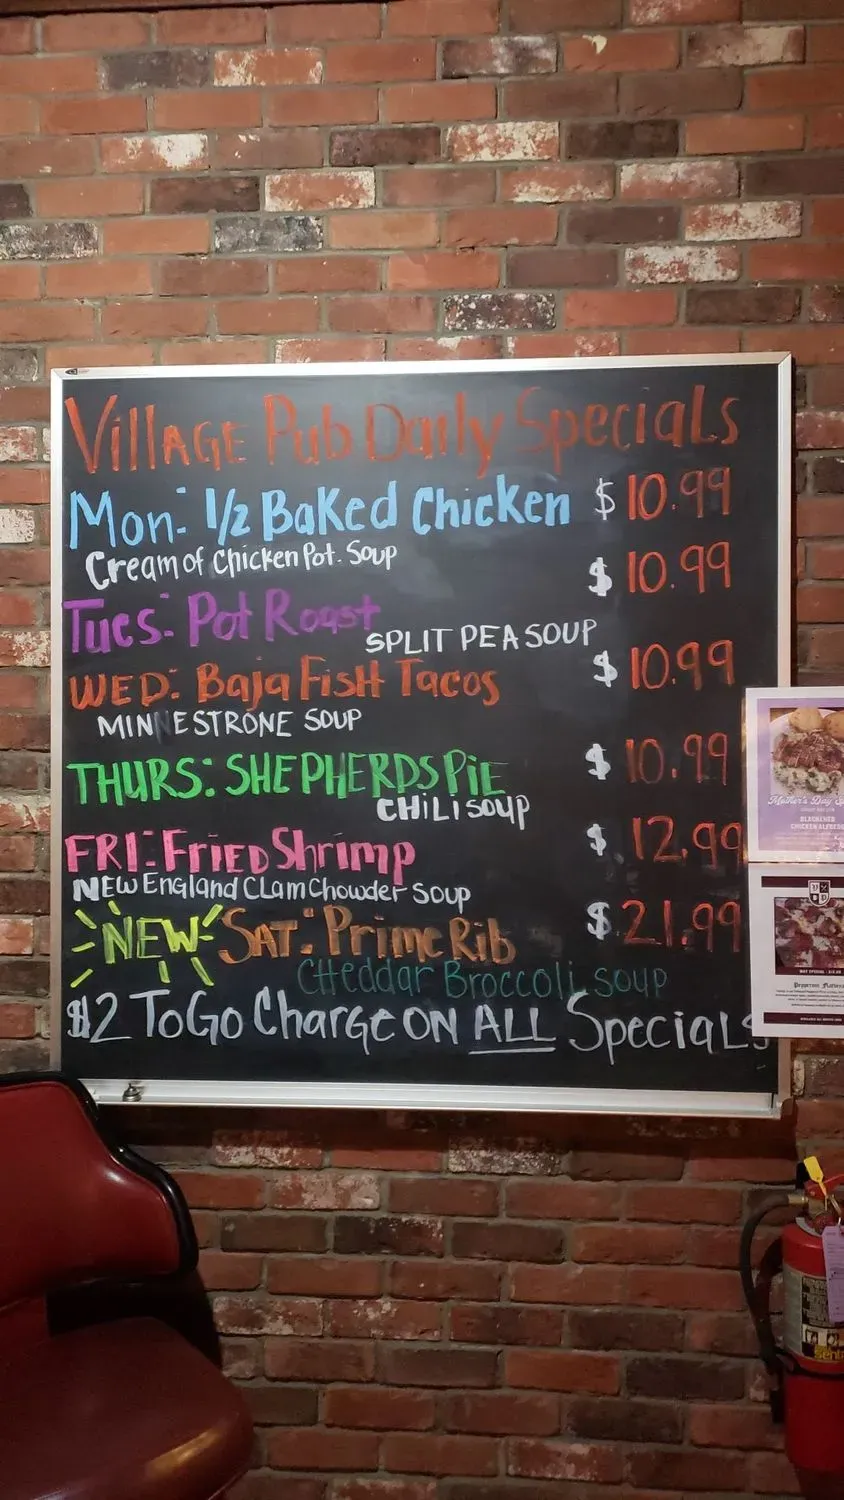 Village Pub Daily Specials
Mon: 1/2 Baked Chicken $10.99
Cream of Chicken Pot. Soup
Tues: Pot Roast $10.99
SPLIT PEA SOUP
WED: Baja Fish Tacos $10.99
MINNESTRONE SOUP
THURS: SHEPHERDS PiE $10.99
CHiLi Soup
FRI: Fried Shrimp $12.99
New England Clam Chowder Soup
NEW SAT: Prime Rib $21.99
Cheddar Broccoli Soup
$2 ToGo Charge ON ALL Specials
Mother's Day
BLACKENED
CHICKEN ALFREDO
MAY SPECIAL
Pepperoni